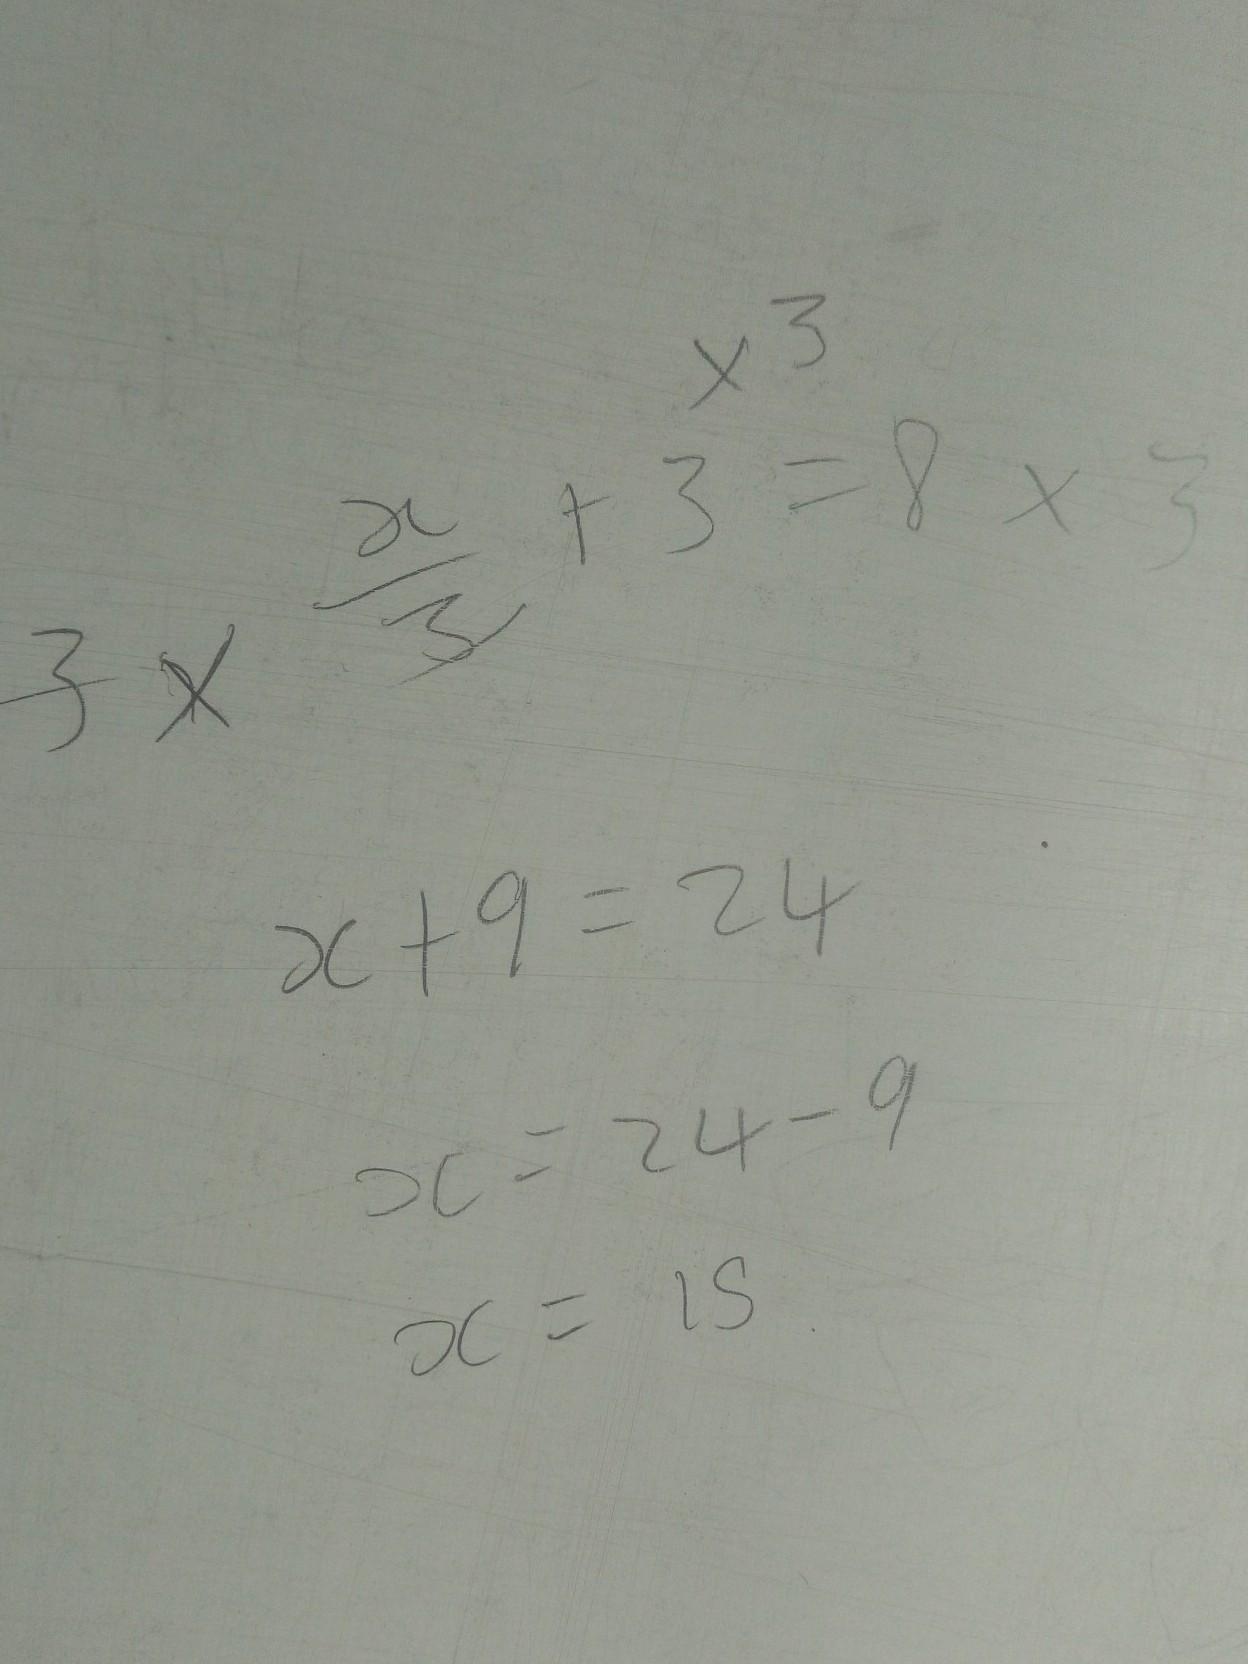 x 3
x/3 + 3 = 8 x 3
3 x
x + 9 = 24
x = 24 - 9
x = 15